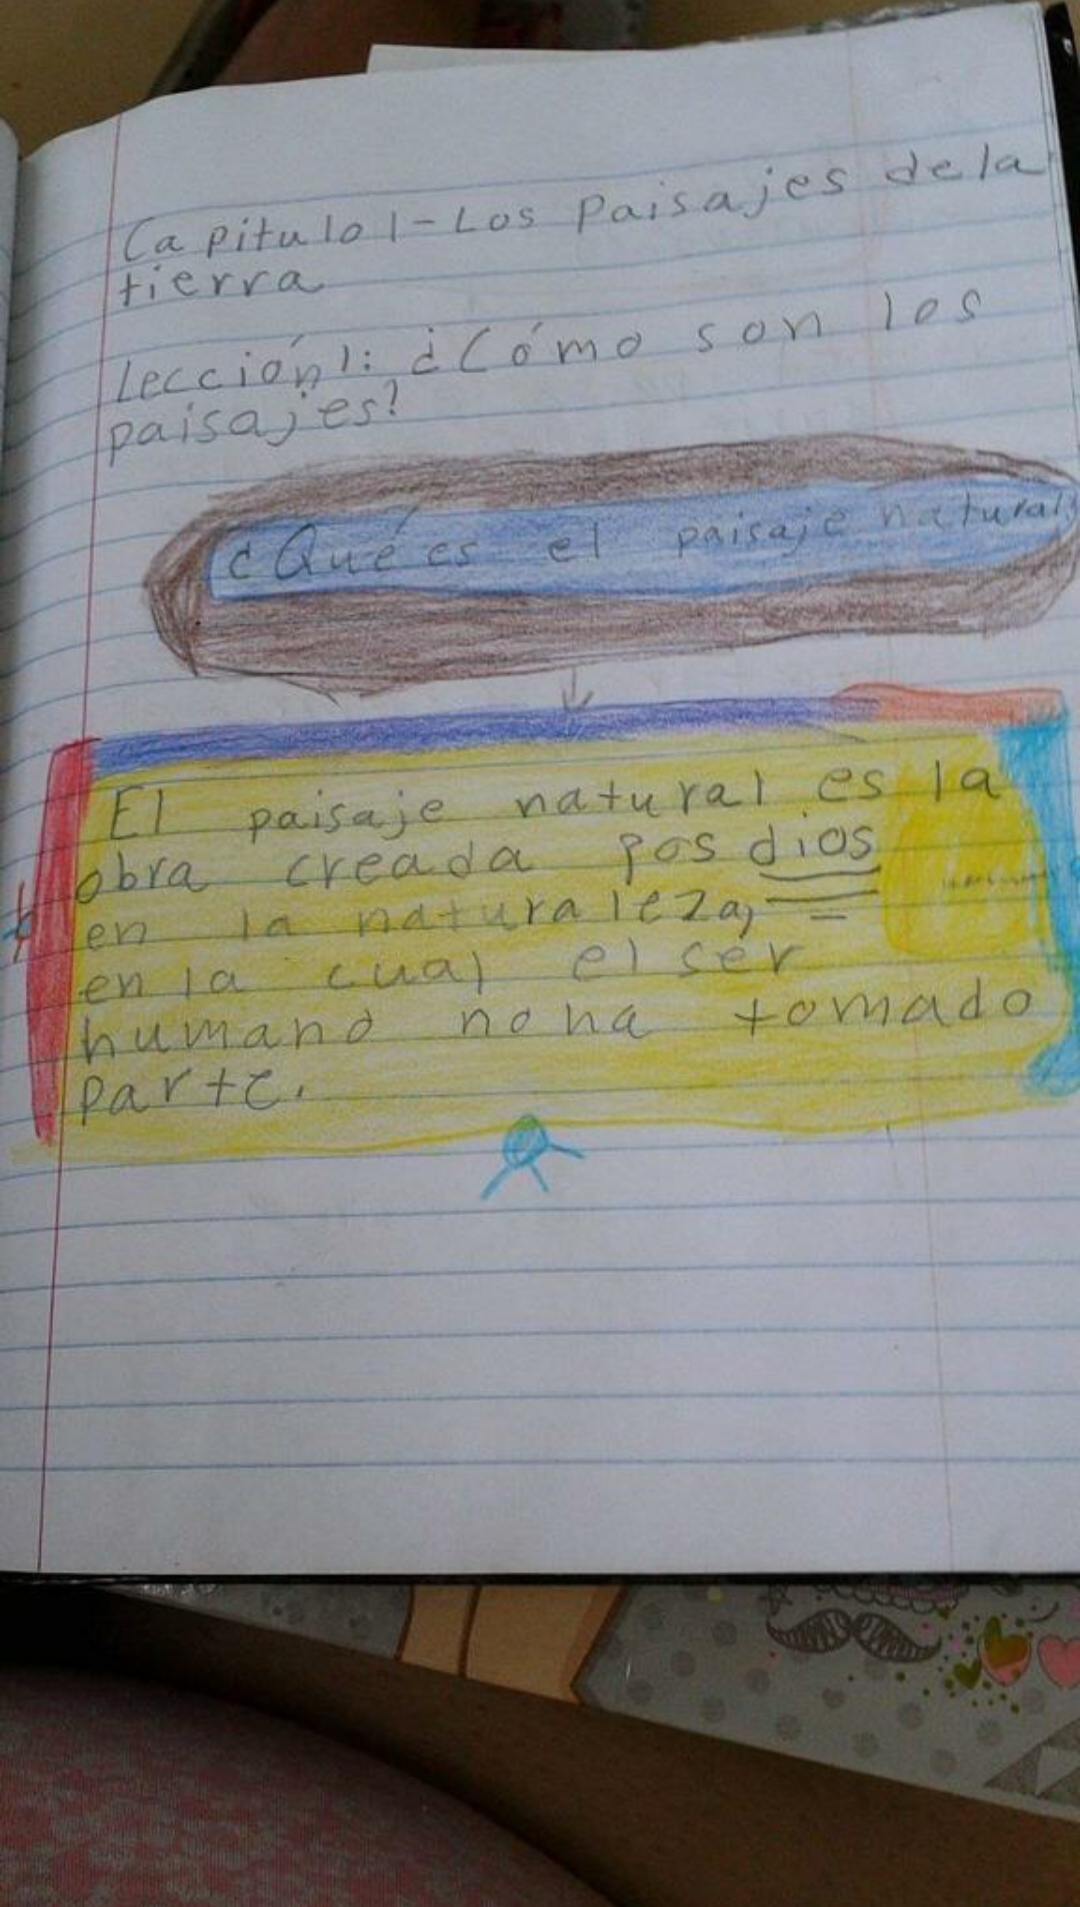 Capitulo 1 - Los Paisajes de la
tierra
Lección 1: ¿Cómo son los
paisajes?
¿Qué es el paisaje natural?
El paisaje natural es la
obra creada pos dios
en la naturaleza,
en la cual el ser
humano no ha tomado
parte.